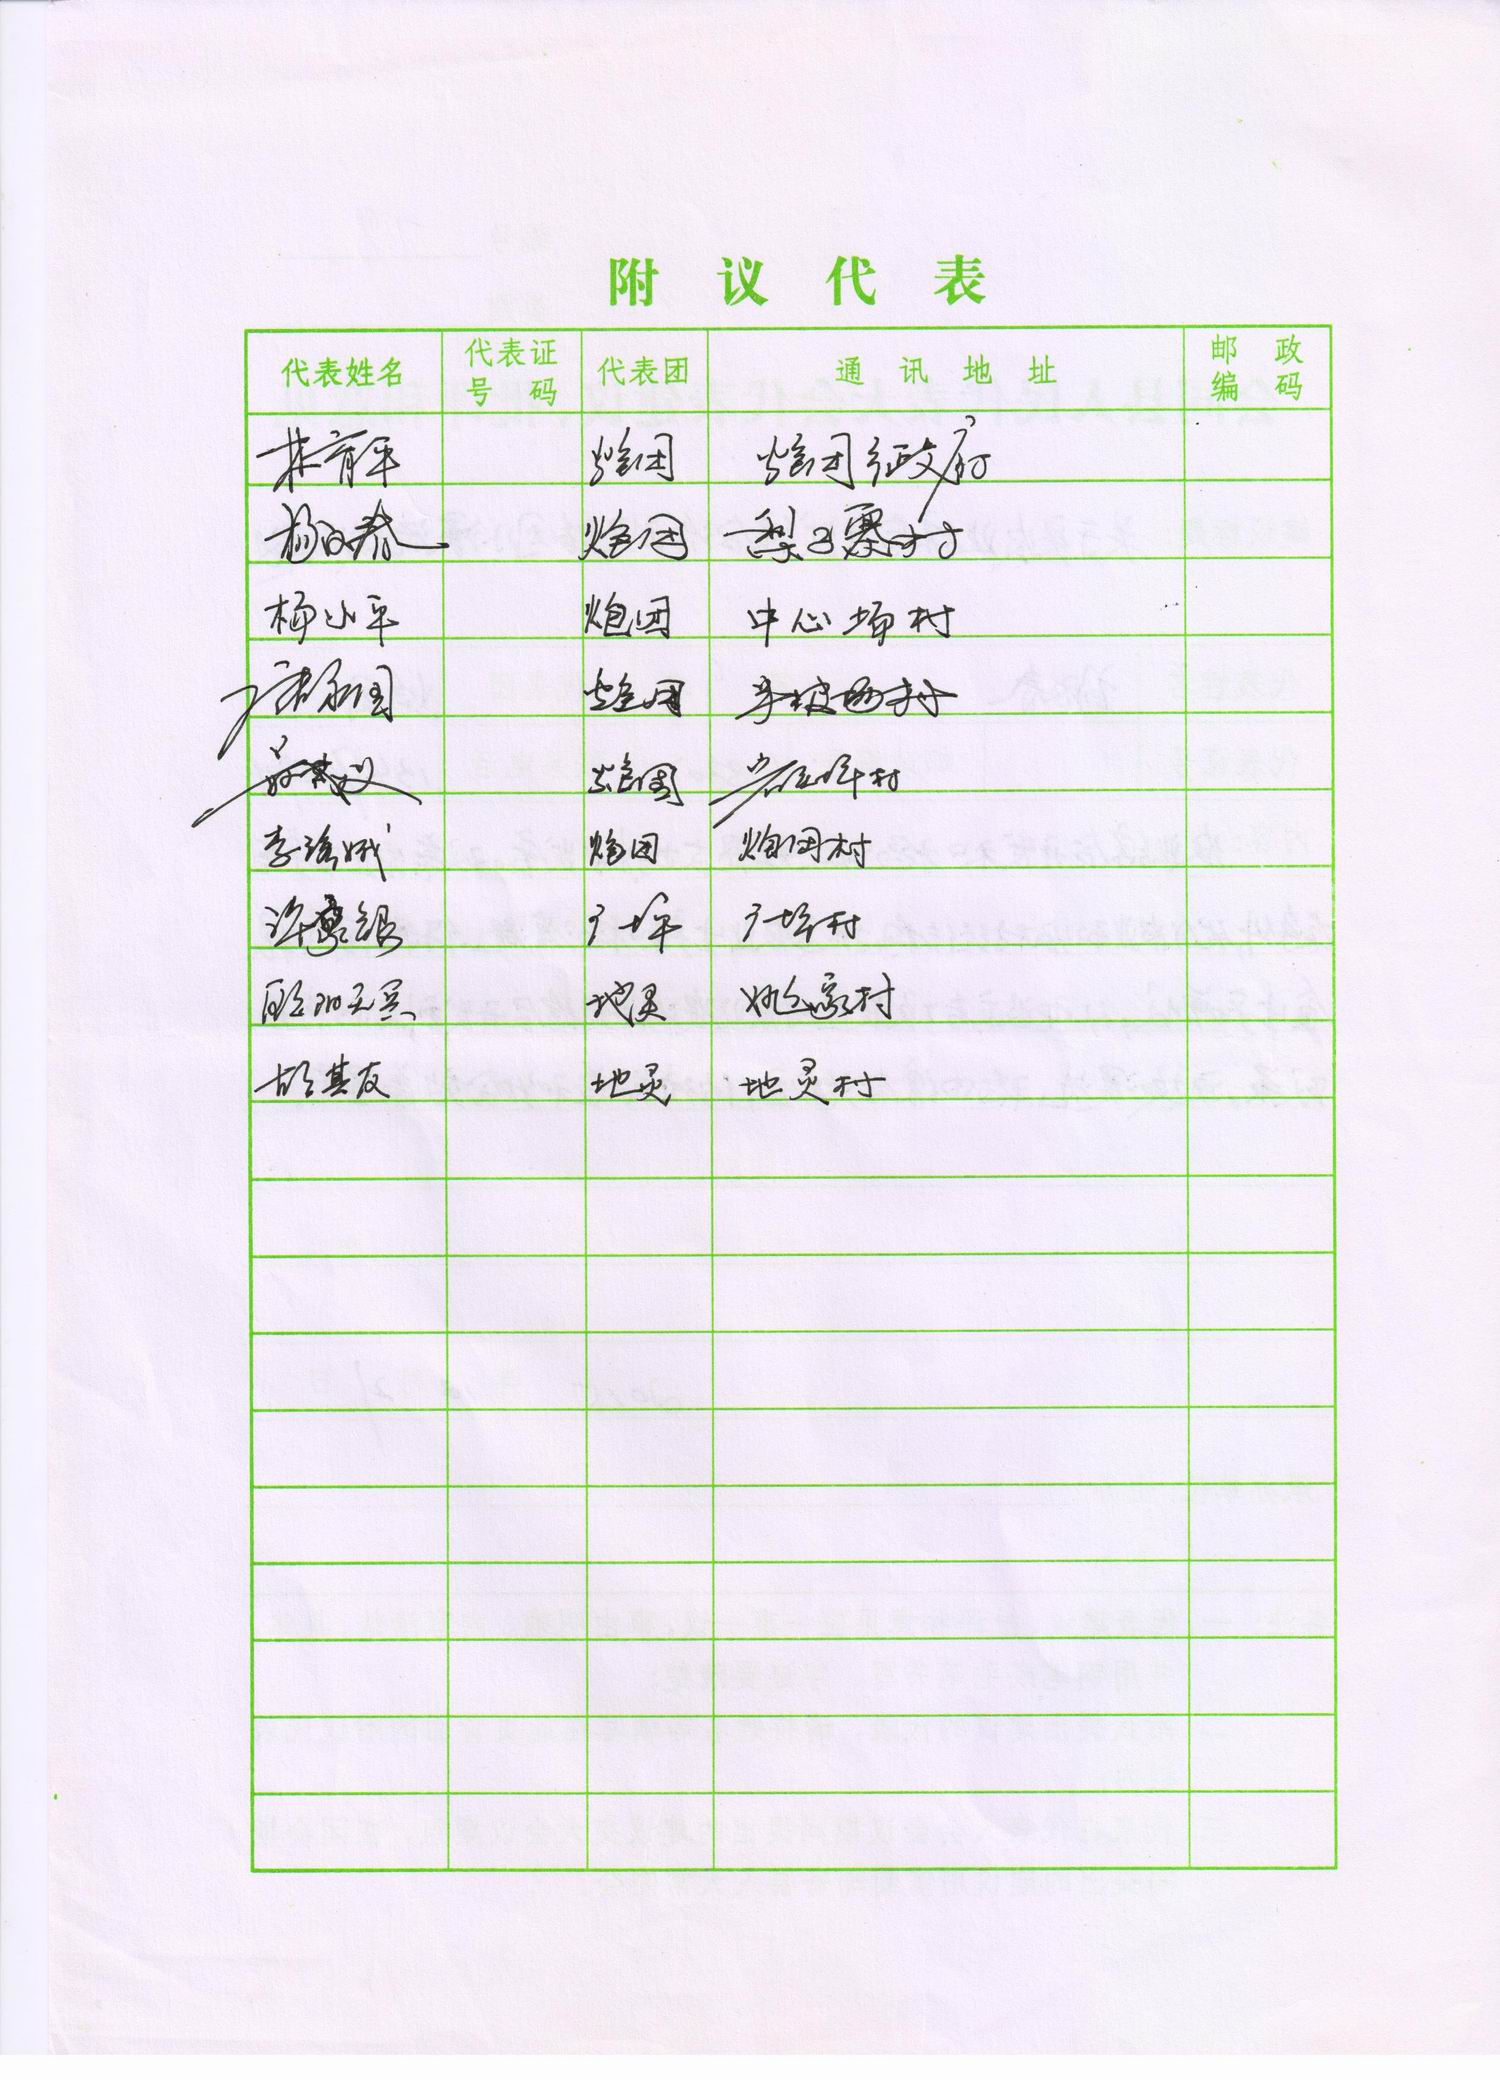 附议代表
代表姓名 代表证号码 代表团 通讯地址 邮政编码
林育平 炮团 炮团乡政府
杨 泰 炮团 梨子寨村
杨小平 炮团 中心场村
永国 炮团 坡西村
义 炮团 村
李瑶娥 炮团 炮团村
许 银 广坪 广坪村
地灵 姚家村
胡其友 地灵 地灵村